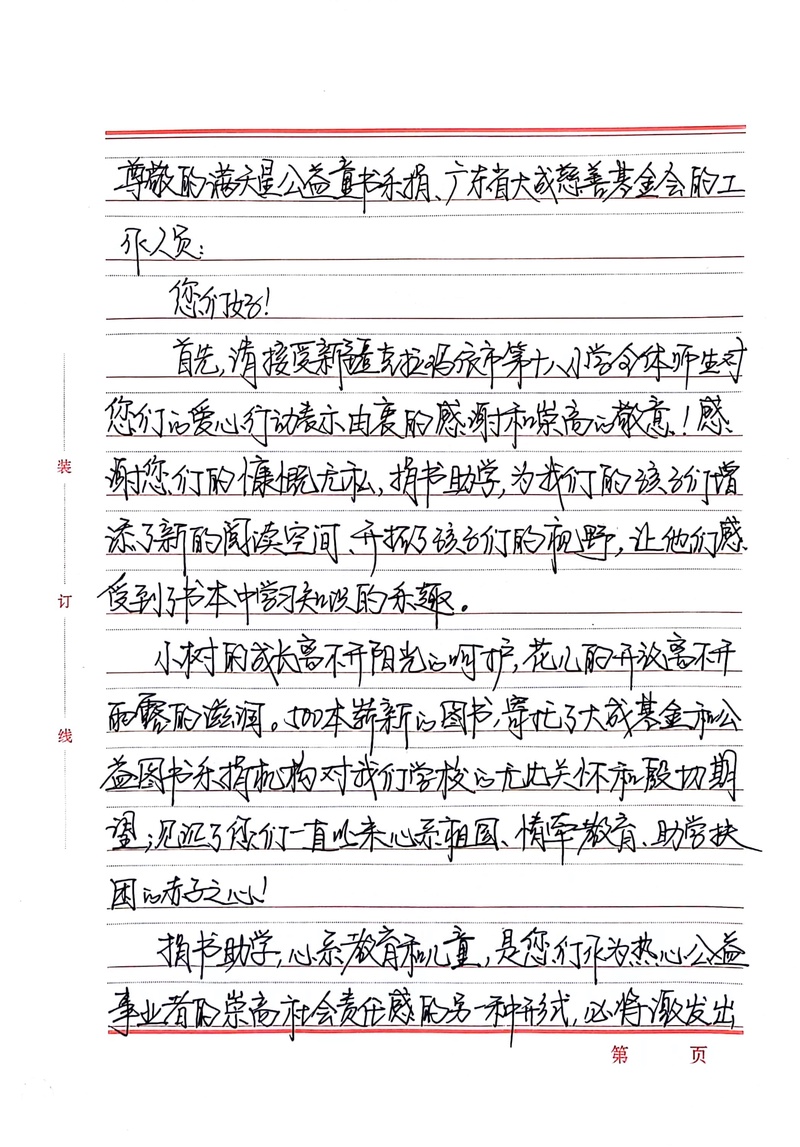 尊敬的满天星公益童书乐捐、广东省大成慈善基金会的工
作人员：
您们好！
首先，请接受新疆克拉玛依市第十八小学全体师生对
您们的爱心行动表示由衷的感谢和崇高的敬意！感
谢您们的慷慨无私，捐书助学，为我们的孩子们增
添了新的阅读空间、开拓了孩子们的视野，让他们感
受到了书本中学习知识的乐趣。
小树的成长离不开阳光的呵护，花儿的开放离不开
雨露的滋润。500本崭新的图书，寄托了大成基金和公
益图书乐捐机构对我们学校的无比关怀和殷切期
望；见证了您们一直以来心系祖国、情牵教育、助学扶
困的赤子之心！
捐书助学，心系教育和儿童，是您们作为热心公益
事业者的崇高社会责任感的另一种形式，必将激发出
装
订
线
第 页